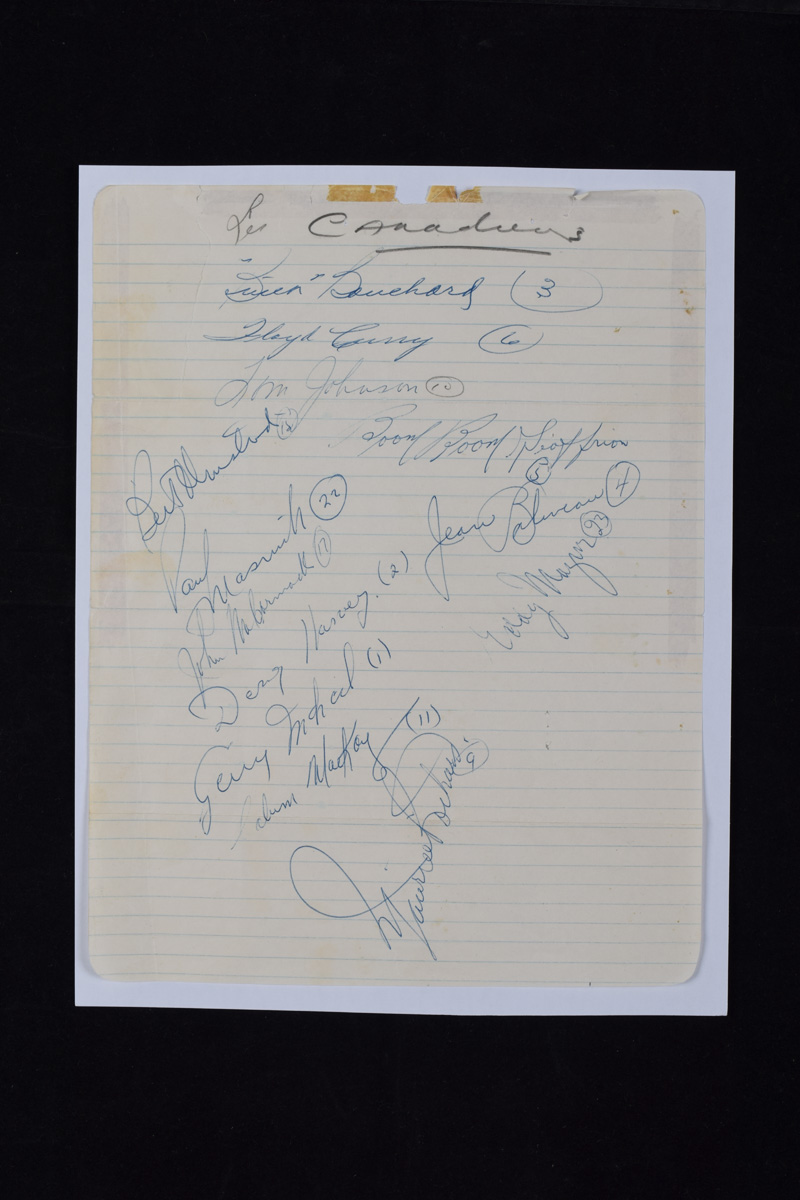 Les Canadiens
"Butch" Bouchard (3)
Floyd Curry (6)
Tom Johnson (10)
Boom Boom Geoffrion
(5)
Bert Olmstead (15)
Jean Beliveau (4)
Paul Masnick (22)
Eddy Mazur (23)
John McCormack (17)
Doug Harvey. (2)
Gerry McNeil (1)
Calum MacKay (11)
Maurice Richard (9)